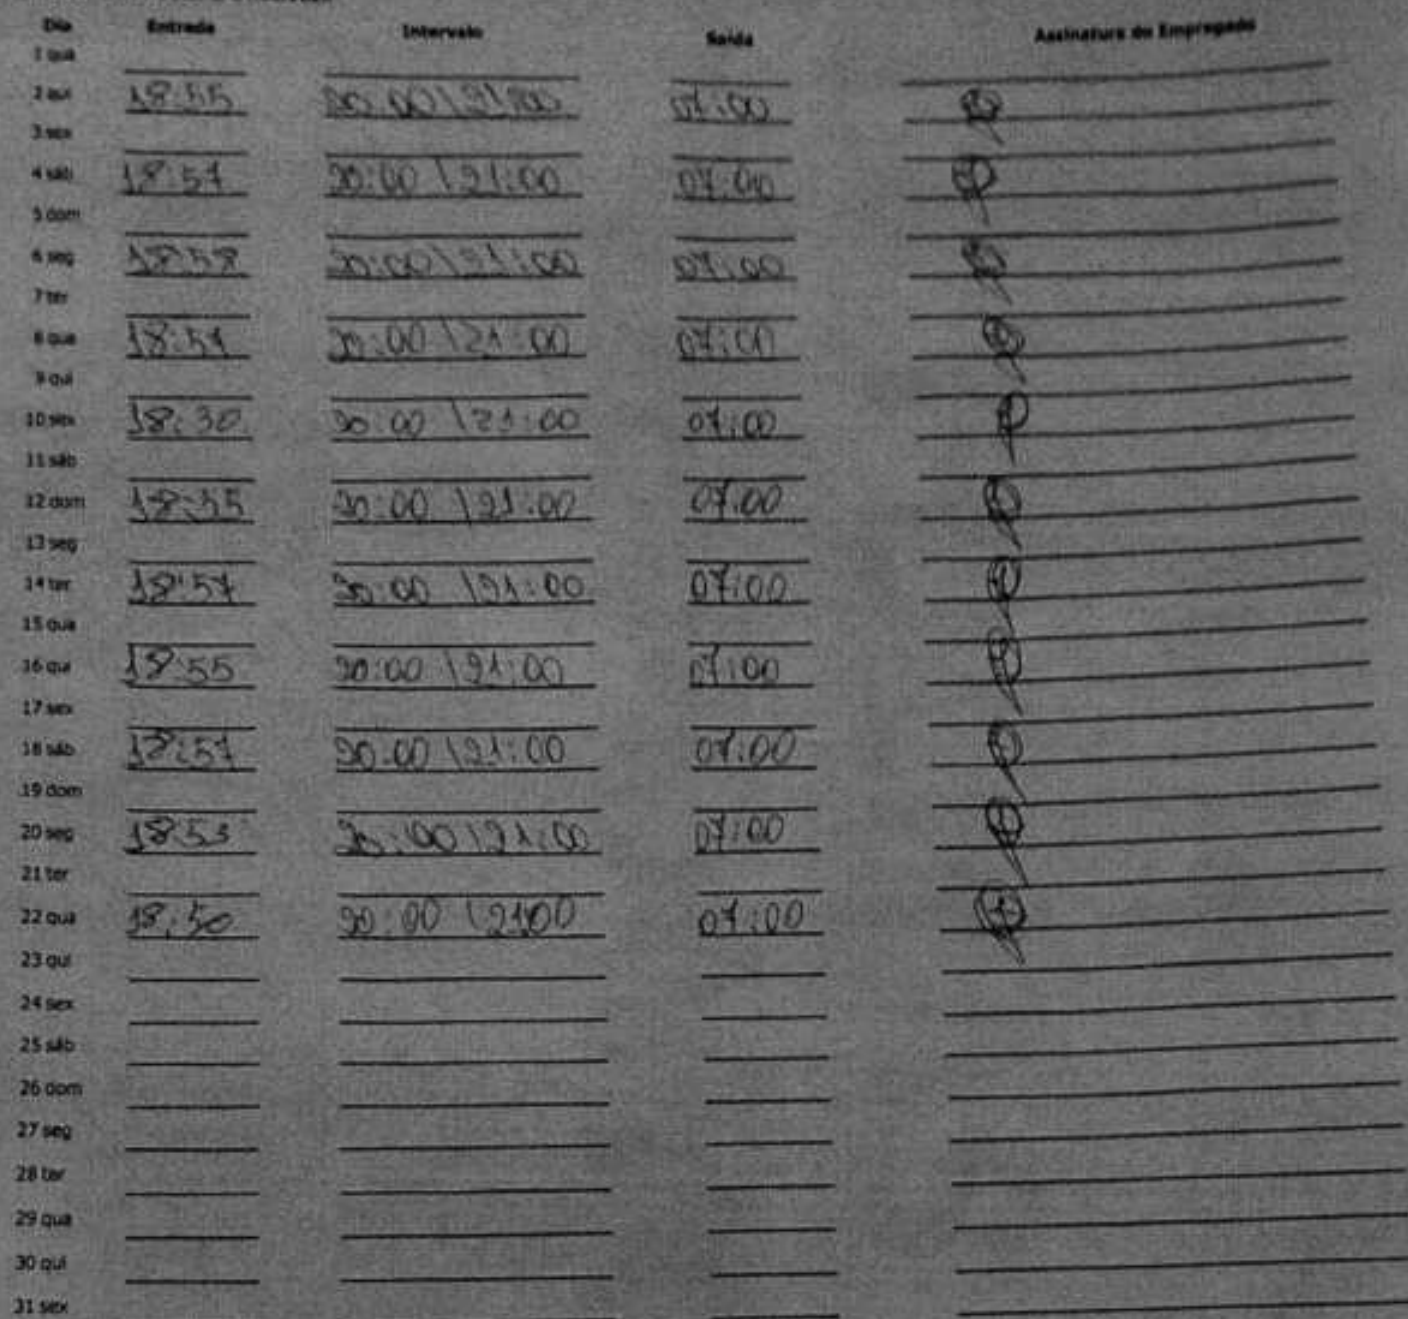 Dia Entrada Intervalo Saída Assinatura do Empregado
1 qua
2 qui 18:55 20:00 | 21:00 07:00
3 sex
4 sáb 18:57 20:00 | 21:00 07:00
5 dom
6 seg 18:58 20:00 | 21:00 07:00
7 ter
8 qua 18:57 20:00 | 21:00 07:00
9 qui
10 sex 18:30 20:00 | 21:00 07:00
11 sáb
12 dom 18:55 20:00 | 21:00 07:00
13 seg
14 ter 18:57 20:00 | 21:00 07:00
15 qua
16 qui 18:55 20:00 | 21:00 07:00
17 sex
18 sáb 18:57 20:00 | 21:00 07:00
19 dom
20 seg 18:53 20:00 | 21:00 07:00
21 ter
22 qua 18:50 20:00 | 21:00 07:00
23 qui
24 sex
25 sáb
26 dom
27 seg
28 ter
29 qua
30 qui
31 sex